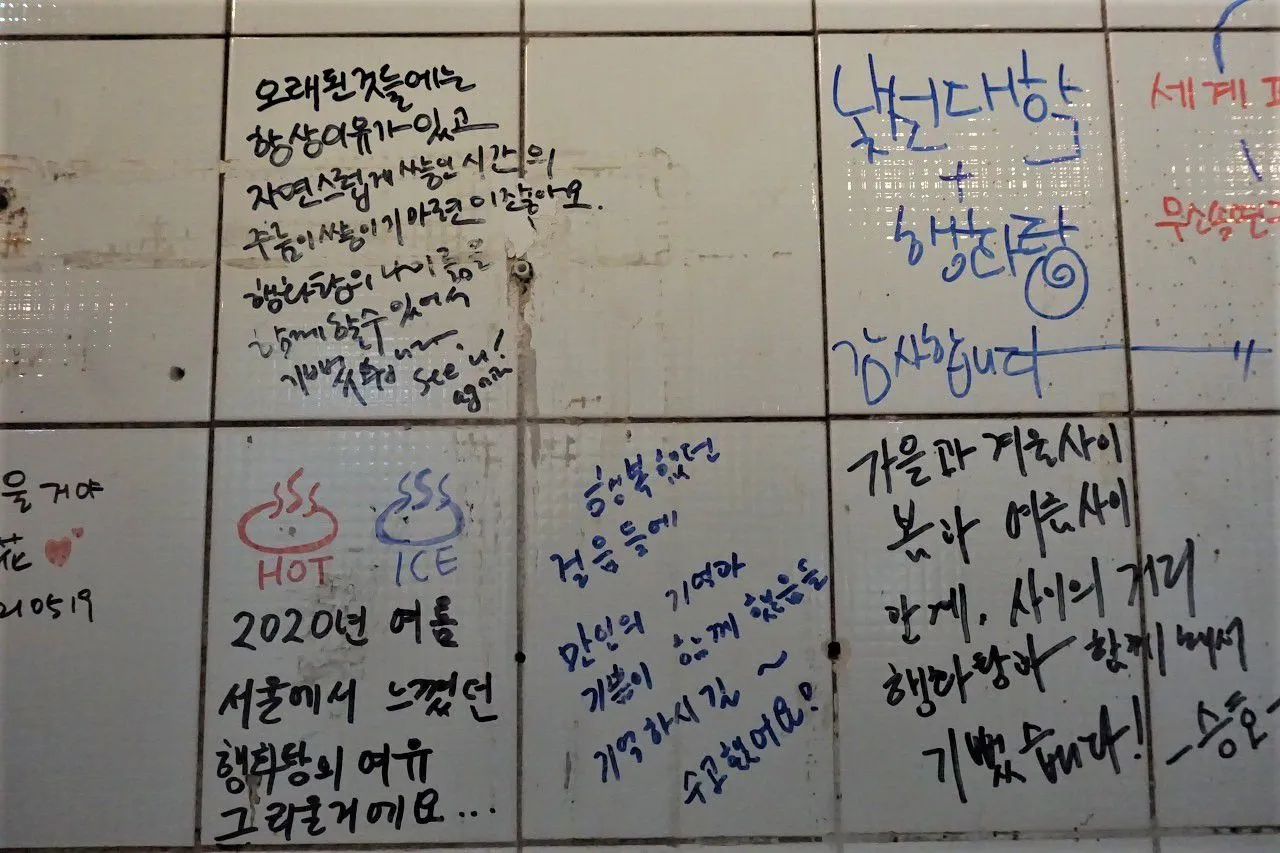 오래된것들에는
항상이유가 있고
자연스럽게 쌓인 시간의
주름이 쌓이기 마련 이잖아요.
행화탕의 나이듦을
함께 할 수 있어서
기뻤습니다. see u!
again
낯설대학
+
행화탕
감사합니다 "
세계
을 거야
花
210519
HOT ICE
2020년 여름
서울에서 느꼈던
행화탕의 여유
그리울거에요...
행복했던
걸음들에
만인의 기억과
기쁨이 함께 했음을
기억하시길 ~
수고했어요!
가을과 겨울사이
봄과 여름사이
관계, 사이의 거리
행화탕과 함께 해서
기뻤습니다! -승호-